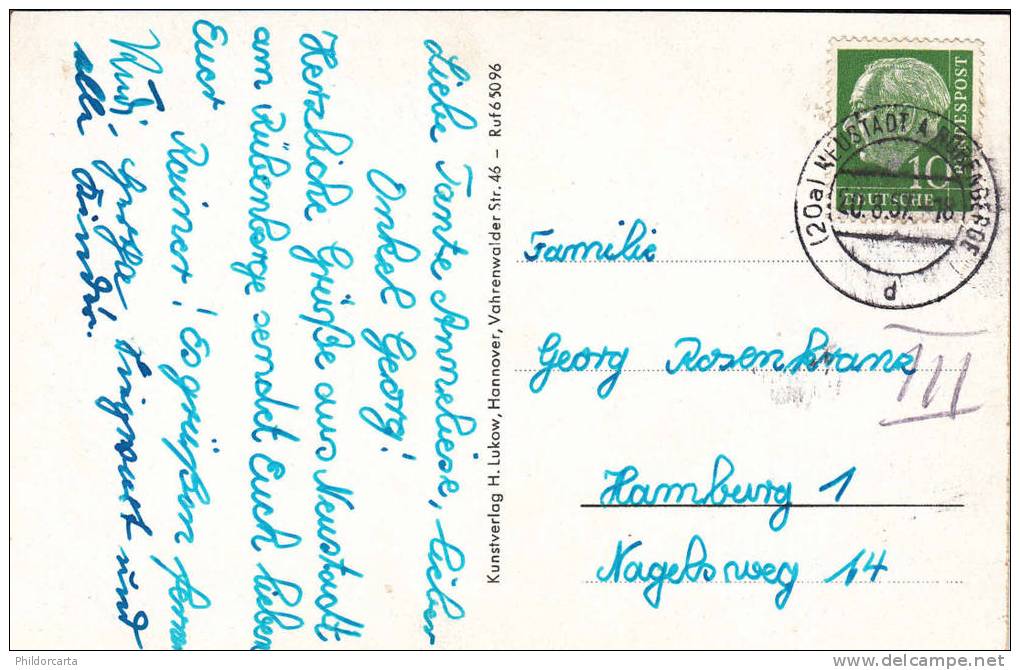 Liebe Tante Anneliese, lieber
Onkel Georg!
Herzliche Grüße aus Neustadt
am Rübenberge sendet Euch lieben
Euer
Rainer! Es grüßen ferner
Rudi, und
alle Kinder.
Kunstverlag H. Lukow, Hannover, Vahrenwalder Str. 46 – Ruf 6 50 96
DEUTSCHE
BUNDESPOST
10
(20a) NEUSTADT A RÜBENBERGE
d
Familie
Georg Rosenkranz
Hamburg 1
Nagelsweg 14
III
Phildorcarta
www.delcampe.net